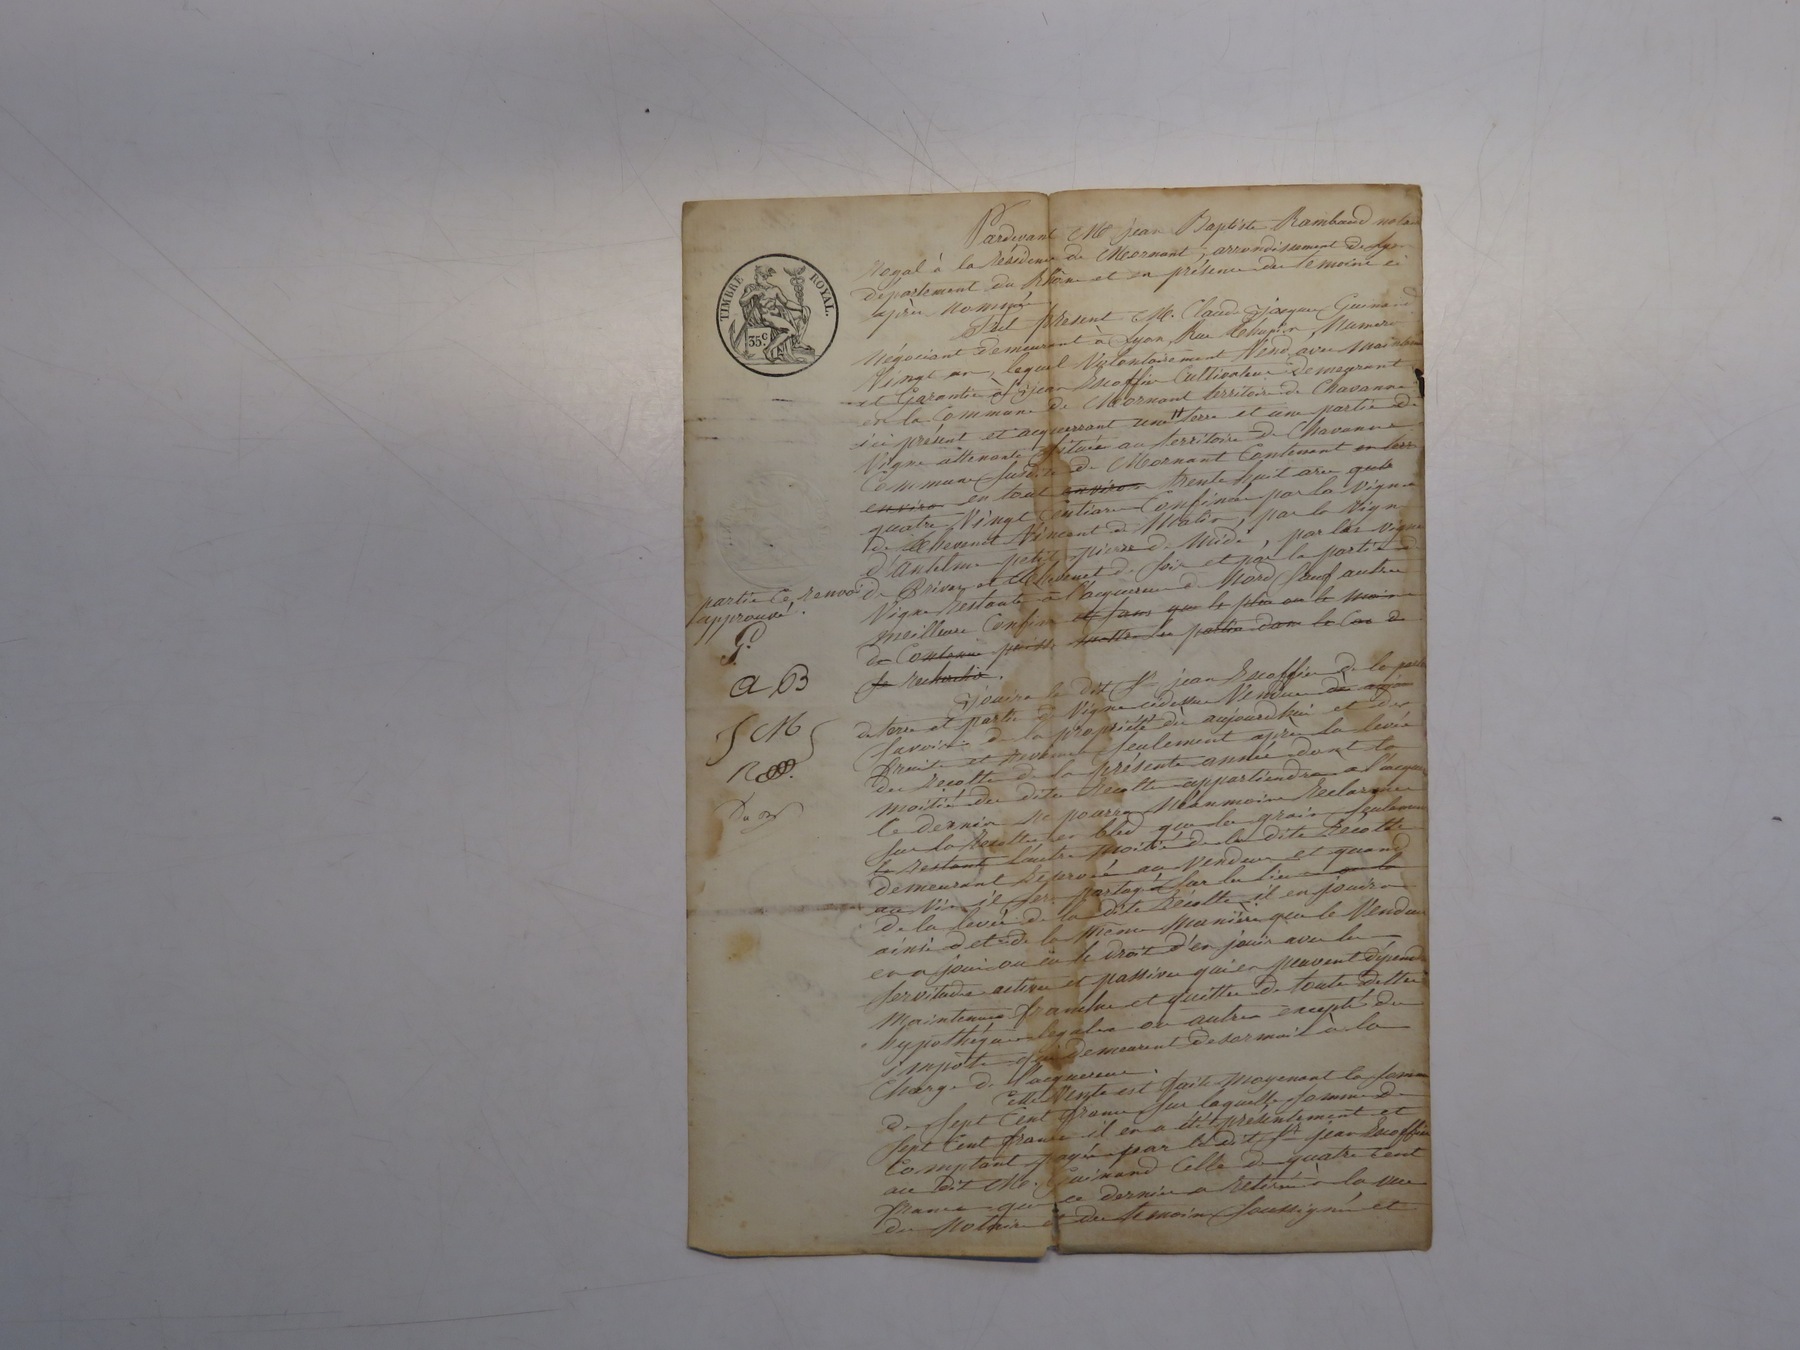 TIMBRE ROYAL.
35c
Pardevant Me jean Baptiste Rambaud notaire
Royal à la résidence de Mornant, arrondissement de Lyon
département du Rhône et en présence des temoins ci
après nommés
fut present M. Claude Jacque Guinand
Négociant demeurant à Lyon Rue Numero
Vingt un, lequel Volontairement Vend, avec Maintenue
et Garantie à jean Escoffier Cultivateur demeurant
en la Commune de Mornant territoire de Chavanne
ici présent et acquerrant une terre et une partie de
Vigne attenante située au territoire de Chavanne
Commune susdite de Mornant Contenant en terre
environ en tout environ trente huit ares
quatre Vingt Centiares Confinée par la Vigne
de Thevenet Vincent de Matin, par la Vigne
d'Antelme petit pierre de Midi, par les Vignes
de et Thevenet de Soir et par la partie de
Vigne restante à l'acquereur de Nord sauf autres
meilleurs Confins et sans que le plus ou le moins
de Contenue puisse mettre les parties dans le Cas de
se rechercher.
partie Ce renvoi
approuvé.
G
A B
CM
R
jouira le dit Sr jean Escoffier de la partie
de terre et partie de Vigne cidessus Vendue
Savoir de la propriété dès aujourdhui et des
fruits et revenus seulement après la levée
des recoltes de la présente année dont la
moitié des dites recoltes appartiendra à l'acquereur
Ce dernier ne pourra Néanmoins reclamer
sur la recolte en bled que les grains seulement
le restant l'autre moitié de la dite recolte
demeurant réservée au Vendeur et quand
au Vin il sera partagé sur les lieux
de la levée de la dite recolte il en jouira
ainsi et de la même manière que le Vendeur
en a joui ou eu le droit d'en jouir avec les
servitudes actives et passives qui en peuvent dépendre
Maintenues franches et quittes de toutes dettes
hypothèques légales ou autres excepté des
impôts qui demeurent desormais à la
Charge de l'acquereur.
Cette Vente est faite moyenant la somme
de Sept Cent francs sur laquelle somme de
Sept Cent francs il en a été présentement et
Comptant payé par le dit Sr jean Escoffier
au dit M. Guinand Celle de quatre Cent
francs que ce dernier a retirée à la vue
du Notaire et des témoins soussignés et